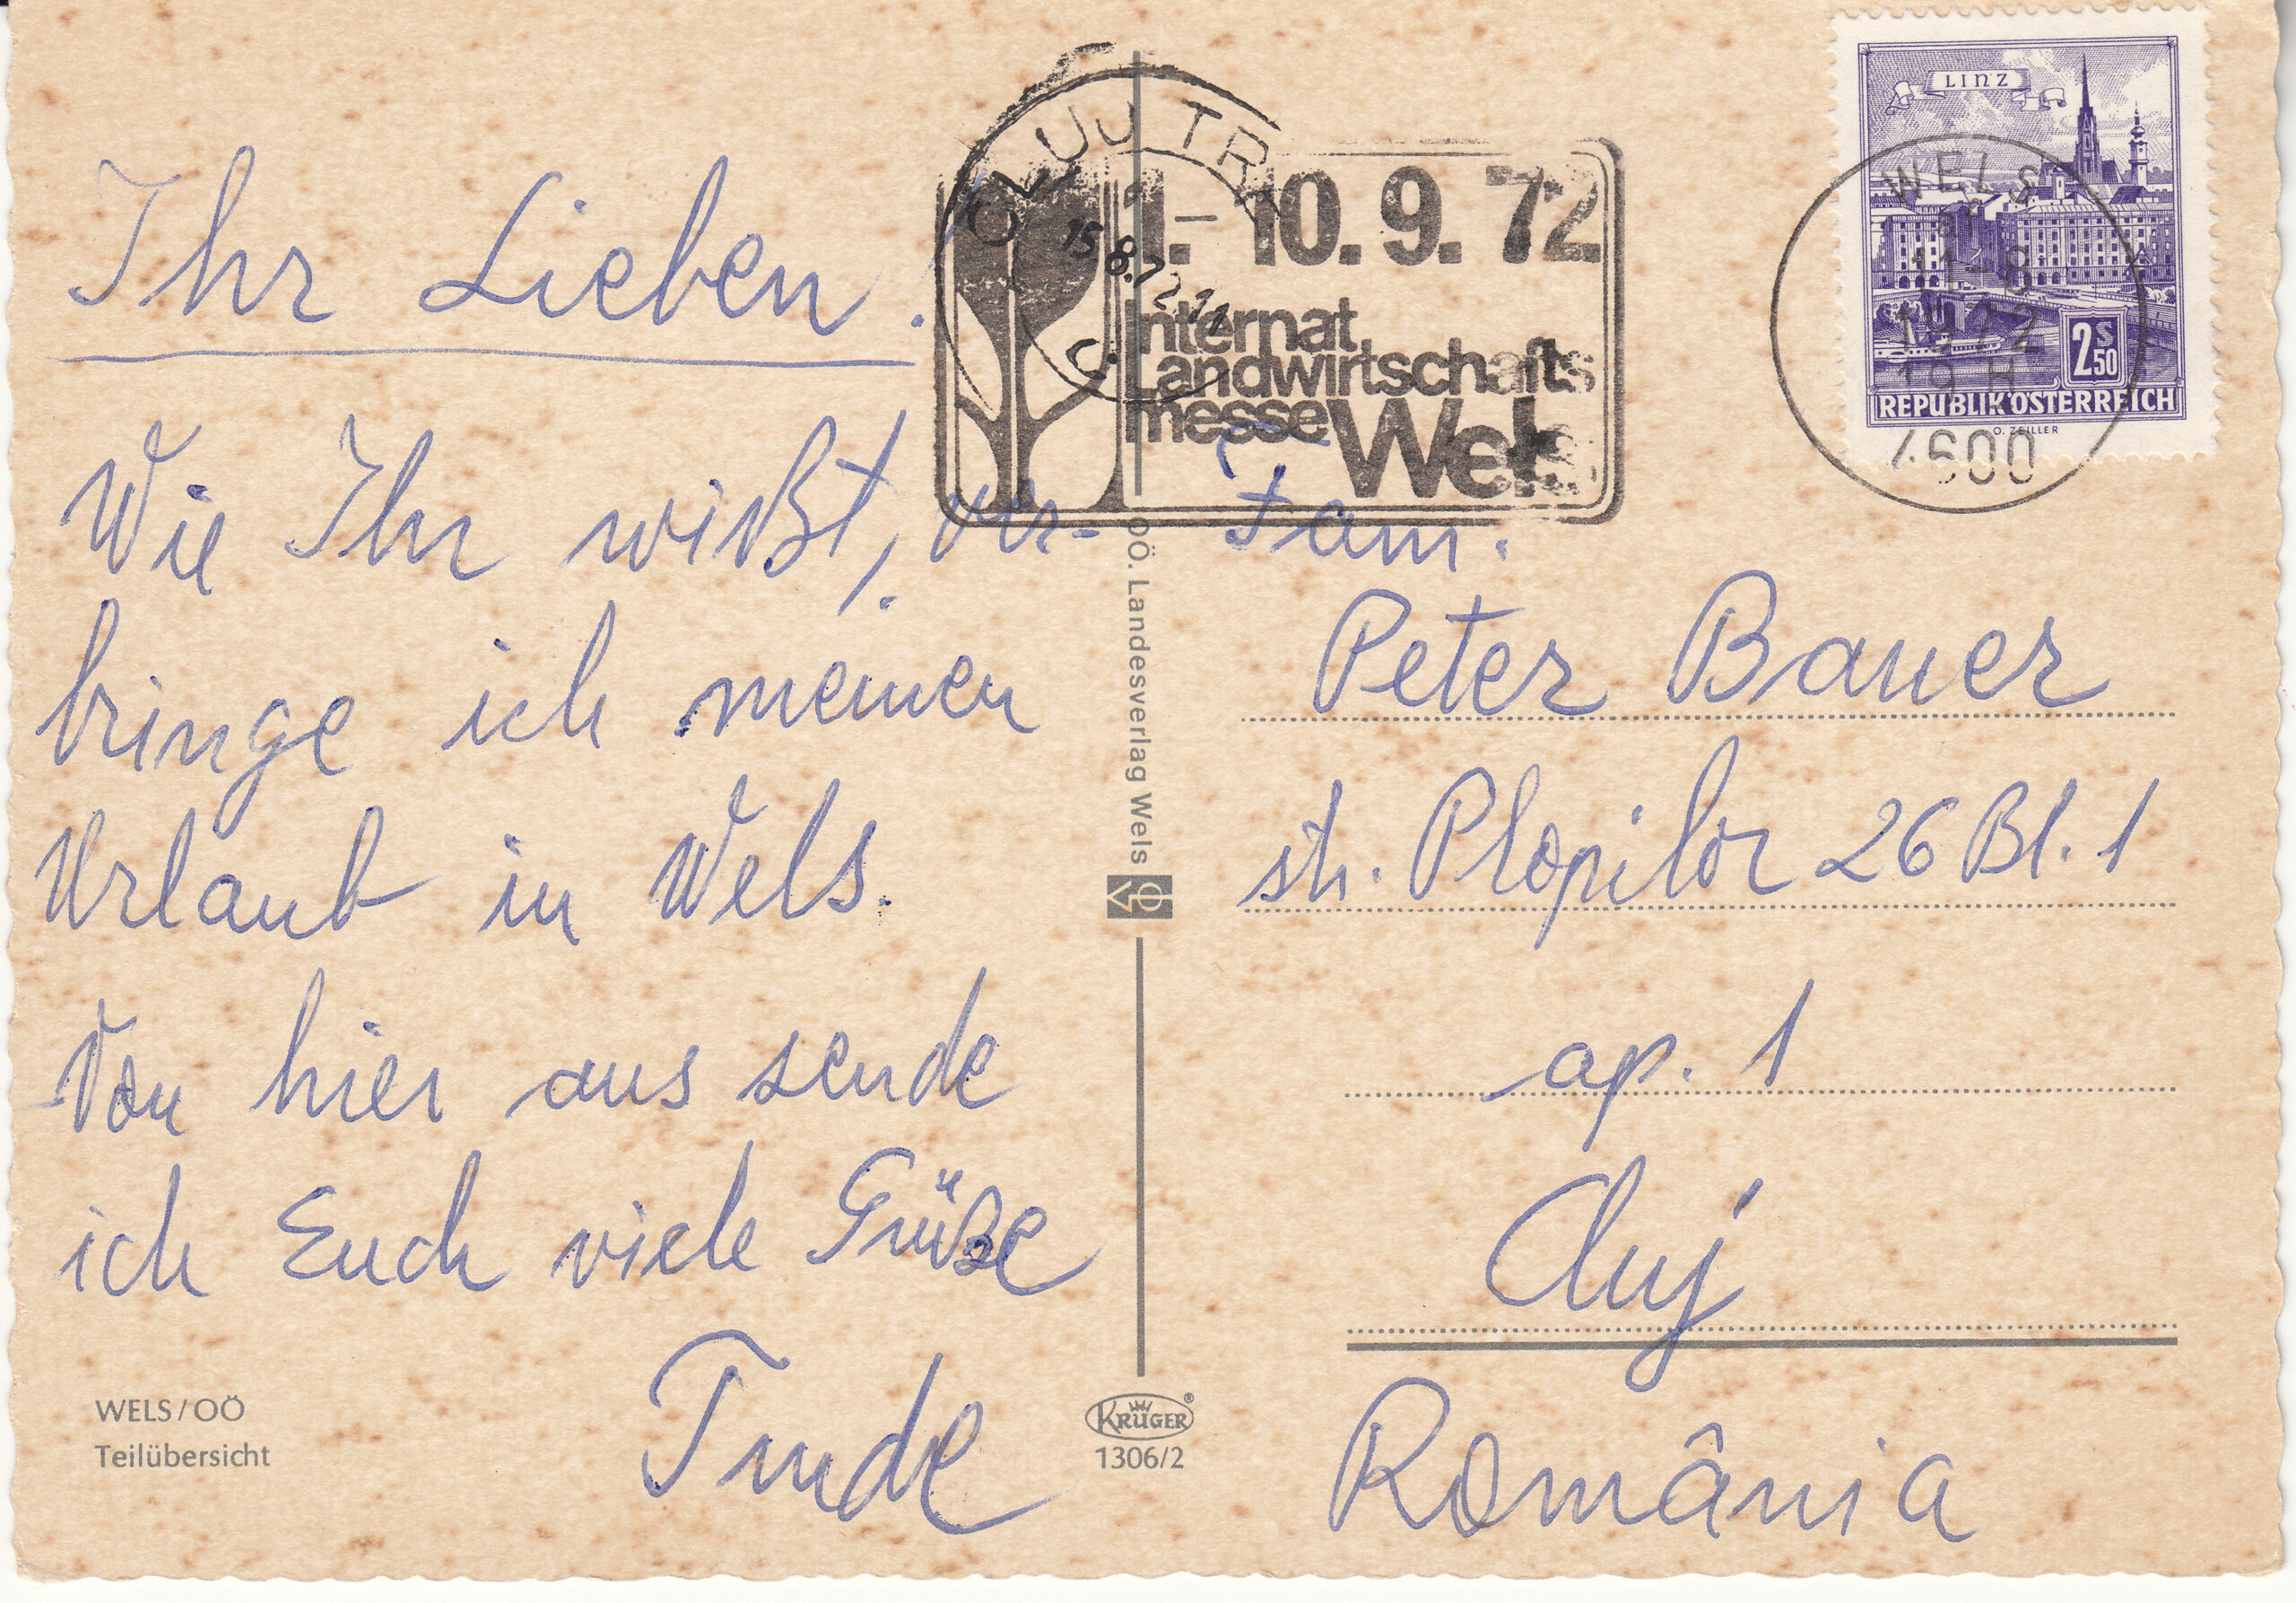 Ihr Lieben!
Wie Ihr wißt, ver-
bringe ich meinen
Urlaub in Wels.
Von hier aus sende
ich Euch viele Grüße
Trude
WELS/OÖ
Teilübersicht
CLUJ TR
15.8.72.11
1.-10.9.72
Internat.
Landwirtschafts
messe Wels
OÖ. Landesverlag Wels
KRÜGER®
1306/2
LINZ
2S50
REPUBLIK ÖSTERREICH
O. ZEILLER
WELS
-8
1972
19H
4600
Fam.
Peter Bauer
str. Plopilor 26 Bl. 1
ap. 1
Cluj
România